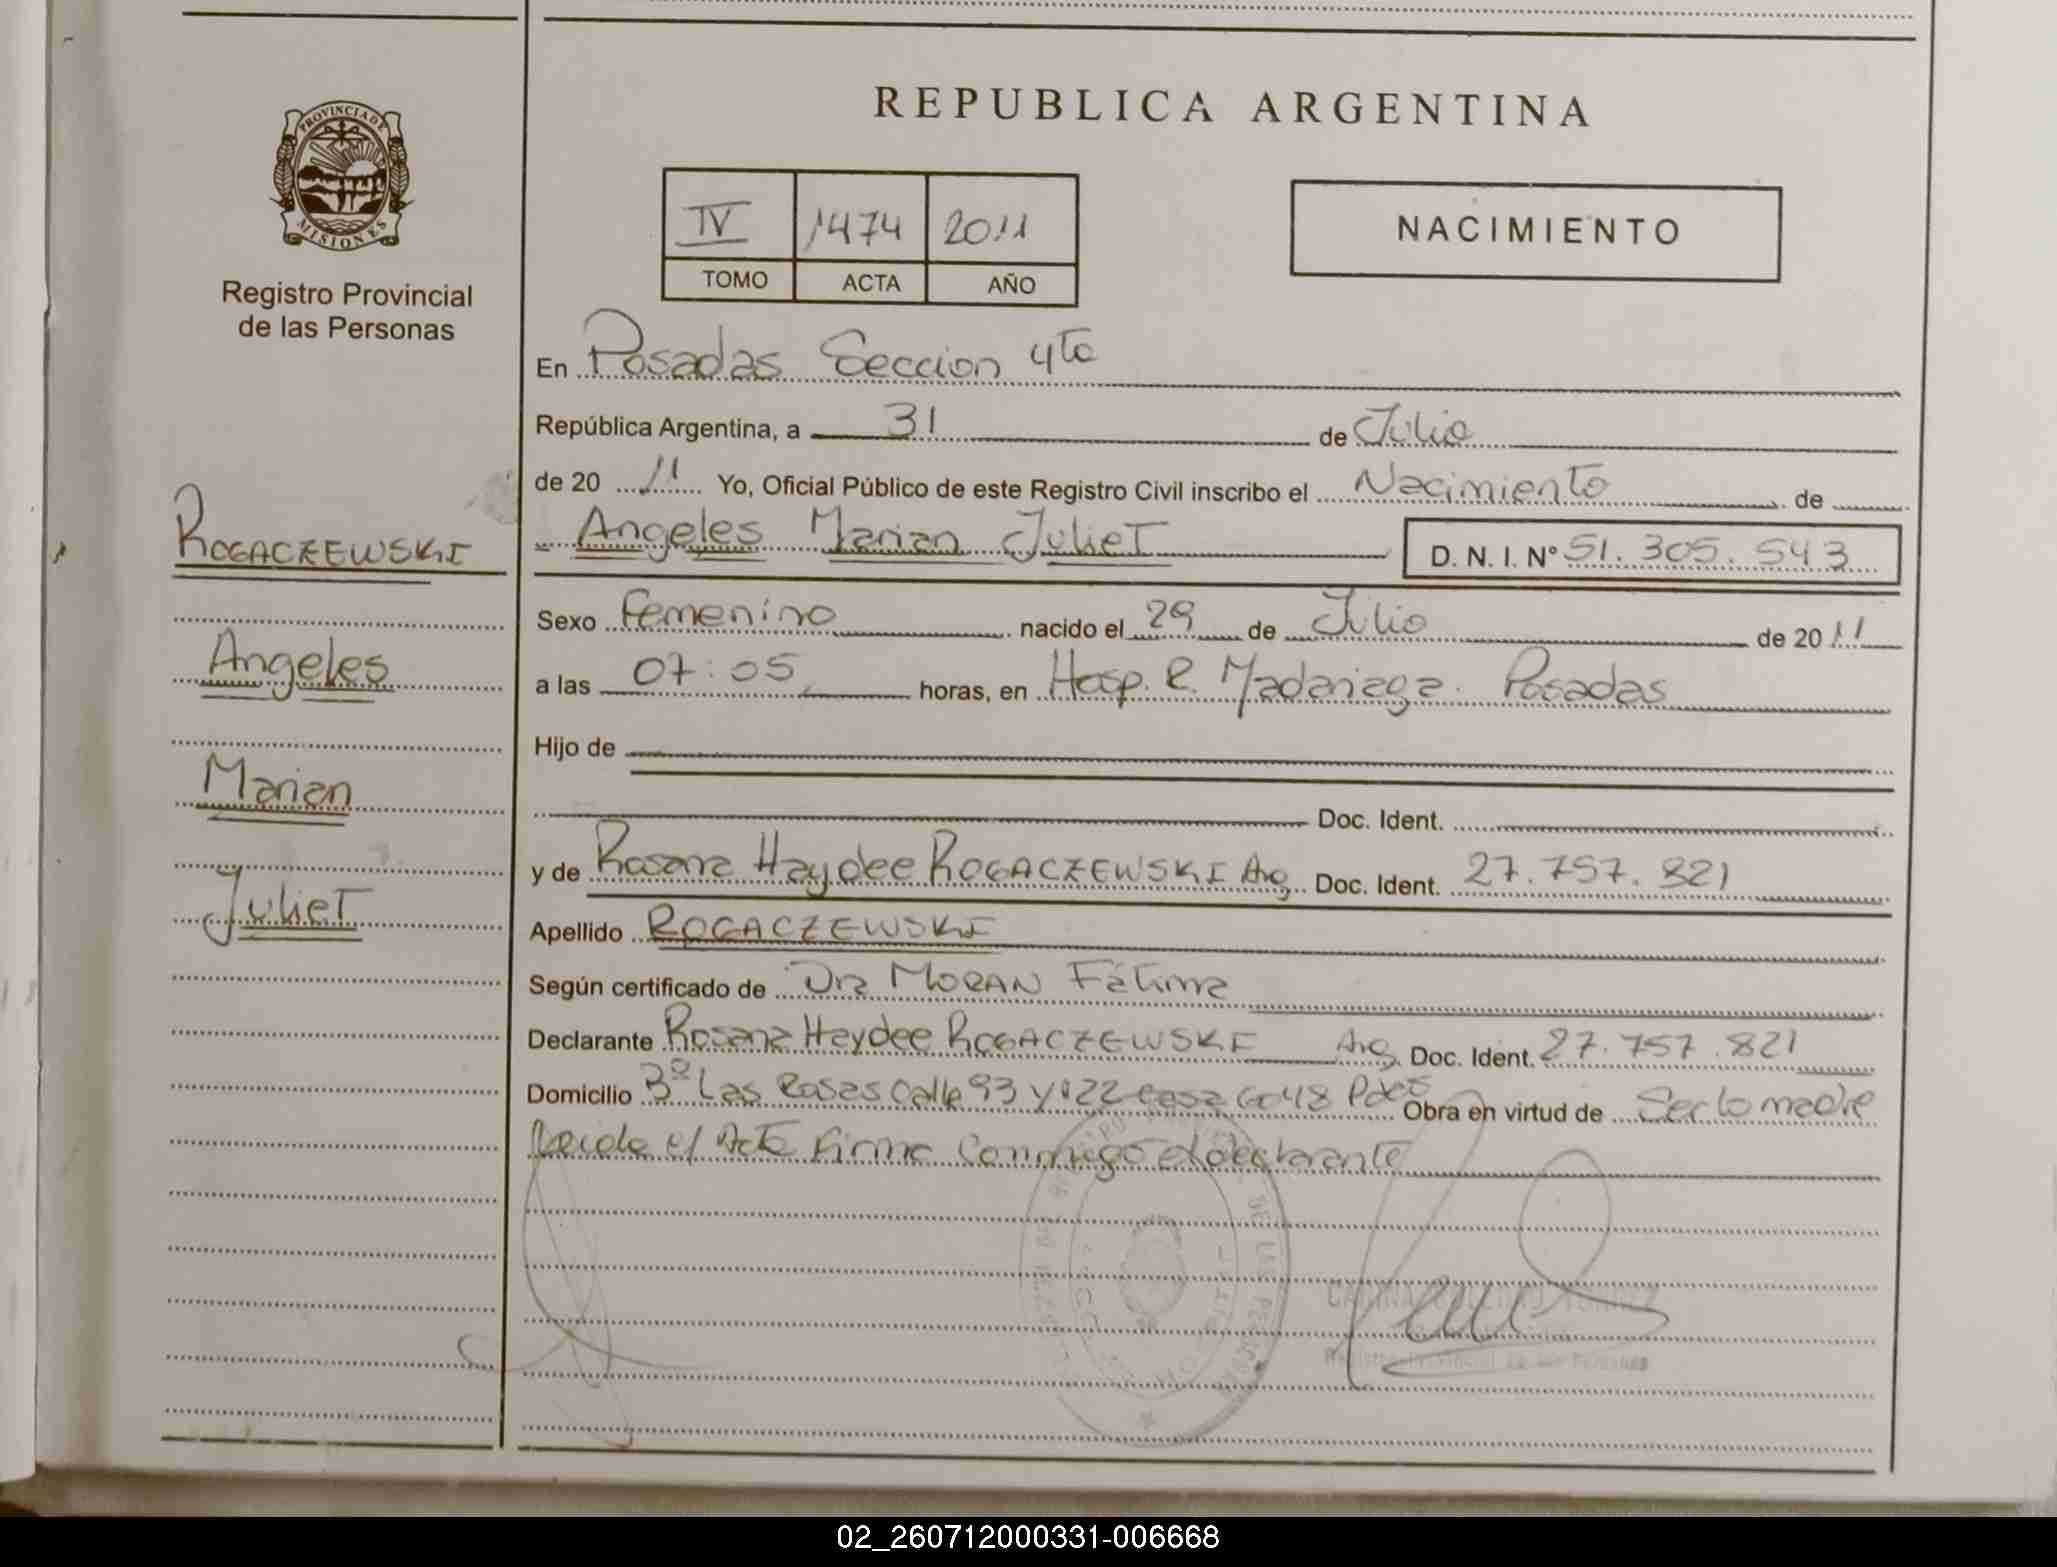 PROVINCIA DE
MISIONES
Registro Provincial
de las Personas
ROGACZEWSKI
Angeles
Marian
Juliet
REPUBLICA ARGENTINA
IV 1474 2011
TOMO ACTA AÑO
NACIMIENTO
En Posadas Seccion 4ta
República Argentina, a 31 de Julio
de 20 11 Yo, Oficial Público de este Registro Civil inscribo el Nacimiento de
Angeles Marian Juliet D. N. I. Nº 51.305.543
Sexo Femenino nacido el 29 de Julio de 20 11
a las 07:05 horas, en Hosp. R. Madariaga. Posadas
Hijo de
Doc. Ident.
y de Rosana Haydee ROGACZEWSKI Arg. Doc. Ident. 27.757.821
Apellido ROGACZEWSKI
Según certificado de Dra MORAN Fátima
Declarante Rosana Haydee ROGACZEWSKI Arg. Doc. Ident. 27.757.821
Domicilio Bº Las Rosas Calle 93 y 122 casa Pdas Obra en virtud de Ser la madre
Leida el Acta Firma Conmigo el declarante
02_260712000331-006668